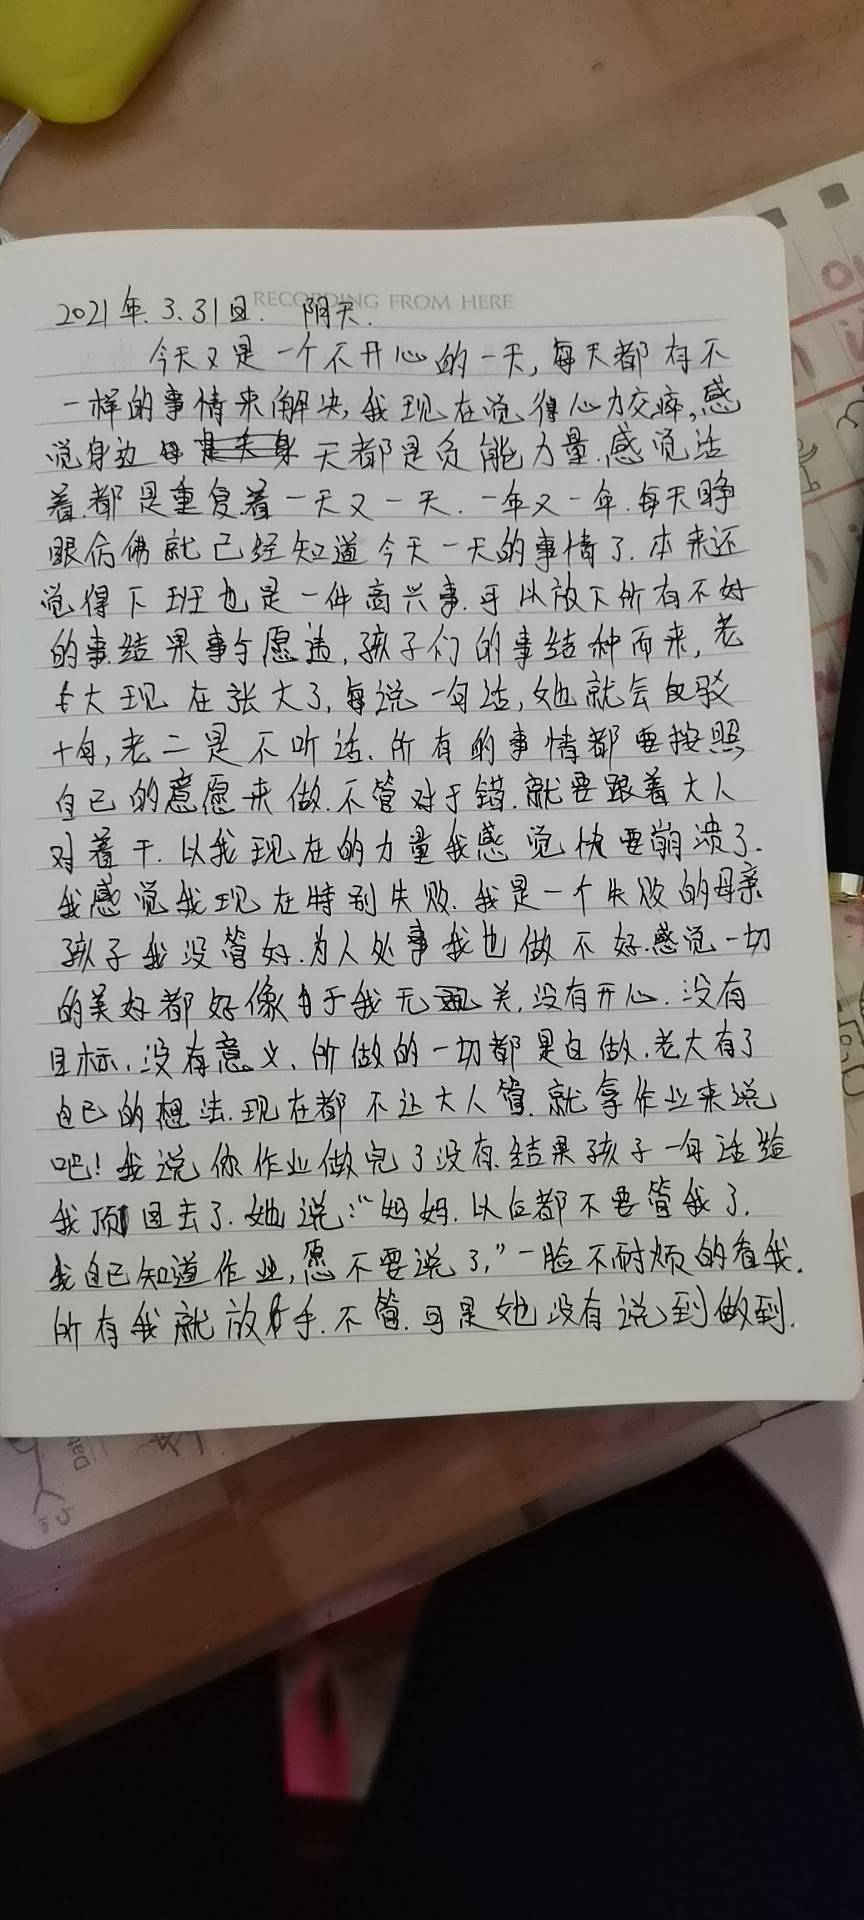 RECORDING FROM HERE
2021年.3.31日. 阴天.
今天又是一个不开心的一天,每天都有不
一样的事情来解决,我现在觉得心力交瘁,感
觉身边每天都是负能力量.感觉活
着.都是重复着一天又一天.一年又一年.每天睁
眼仿佛就已经知道今天一天的事情了.本来还
觉得下班也是一件高兴事.可以放下所有不好
的事.结果事与愿违,孩子们的事结种而来,老
大现在张大了,每说一句话,她就会反驳
十句,老二是不听话.所有的事情都要按照
自己的意愿来做.不管对于错.就要跟着大人
对着干.以我现在的力量我感觉快要崩溃了.
我感觉我现在特别失败.我是一个失败的母亲
孩子我没管好.为人处事我也做不好.感觉一切
的美好都好像于我无关.没有开心.没有
目标.没有意义.所做的一切都是白做.老大有了
自己的想法.现在都不让大人管.就拿作业来说
吧!我说你作业做完了没有.结果孩子一句话给
我顶回去了.她说:“妈妈.以后都不要管我了.
我自己知道作业,愿不要说了,”一脸不耐烦的看我.
所有我就放手.不管.可是她没有说到做到.